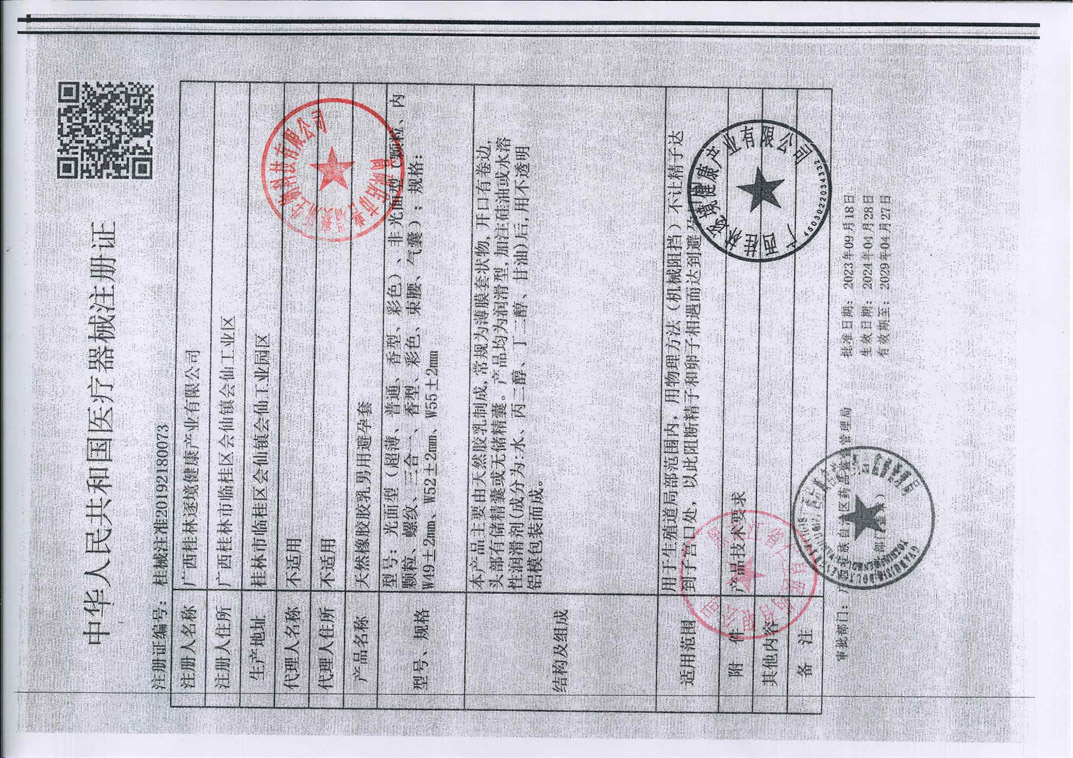 中华人民共和国医疗器械注册证
注册证编号：桂械注准20192180073
注册人名称 广西桂林遂境健康产业有限公司
注册人住所 广西桂林市临桂区会仙镇会仙工业区
生产地址 桂林市临桂区会仙镇会仙工业园区
代理人名称 不适用
代理人住所 不适用
产品名称 天然橡胶胶乳男用避孕套
型号、规格 型号：光面型（超薄、普通、香型、彩色）、非光面型（颗粒、内
颗粒、螺纹、三合一、香型、彩色、束腰、气囊）；规格：
W49±2mm、W52±2mm、W55±2mm
结构及组成 本产品主要由天然胶乳制成，常规为薄膜套状物，开口有卷边，
头部有储精囊或无储精囊。产品均为润滑型，加注硅油或水溶
性润滑剂(成分为:水、丙二醇、丁二醇、甘油)后，用不透明
铝模包装而成。
适用范围 用于生殖道局部范围内，用物理方法（机械阻挡）不让精子达
到子宫口处，以此阻断精子和卵子相遇而达到避
附 件 产品技术要求
其他内容
备 注
审批部门：
批准日期：2023年09月18日
生效日期：2024年04月28日
有效期至：2029年04月27日
广西桂林遂境健康产业有限公司
4503022034332